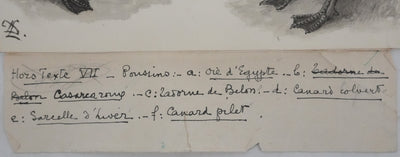 Hors Texte VII – Poussins. – a: Oie d'Egypte – b: Tadorne de
Belon Casarca roux. – c: Tadorne de Belon. – d: Canard colvert
e: Sarcelle d'hiver. – f: Canard pilet.